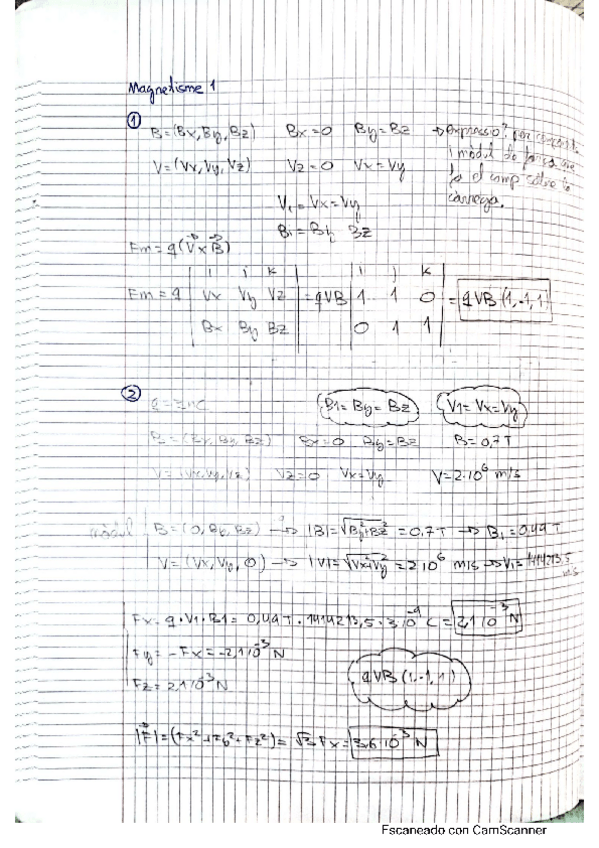 Magnetisme 1
① B=(Bx, By, Bz) Bx=0 By=Bz → expressió? per
V=(Vx, Vy, Vz) Vz=0 Vx=Vy i mòdul de força que
fa el camp sobre la
càrrega.
V1=Vx=Vy
B1=By Bz
Fm=q(V×B)
i j k i j k
Fm=q | Vx Vy Vz | =qVB | 1 1 0 | = qVB(1,-1,1)
Bx By Bz 0 1 1
② B1=By=Bz V1=Vx=Vy
B=(Bx, By, Bz) Bx=0 By=Bz B=0,7T
V=(Vx, Vy, Vz) Vz=0 Vx=Vy V=2·10⁶ m/s
mòdul B=(0, By, Bz) → |B|=√By²+Bz² = 0,7T → B1=0,49T
V=(Vx, Vy, 0) → |V|=√Vx²+Vy² = 2·10⁶ m/s → V1=1414213,5 m/s
Fx=q·V1·B1=0,49T·1414213,5·3·10⁻⁹C=2,1·10⁻³N
Fy=-Fx=-2,1·10⁻³N
Fz=2,1·10⁻³N
qVB(1,-1,1)
|F|=(Fx²+Fy²+Fz²)=√3 Fx=3,6·10⁻³N
Escaneado con CamScanner